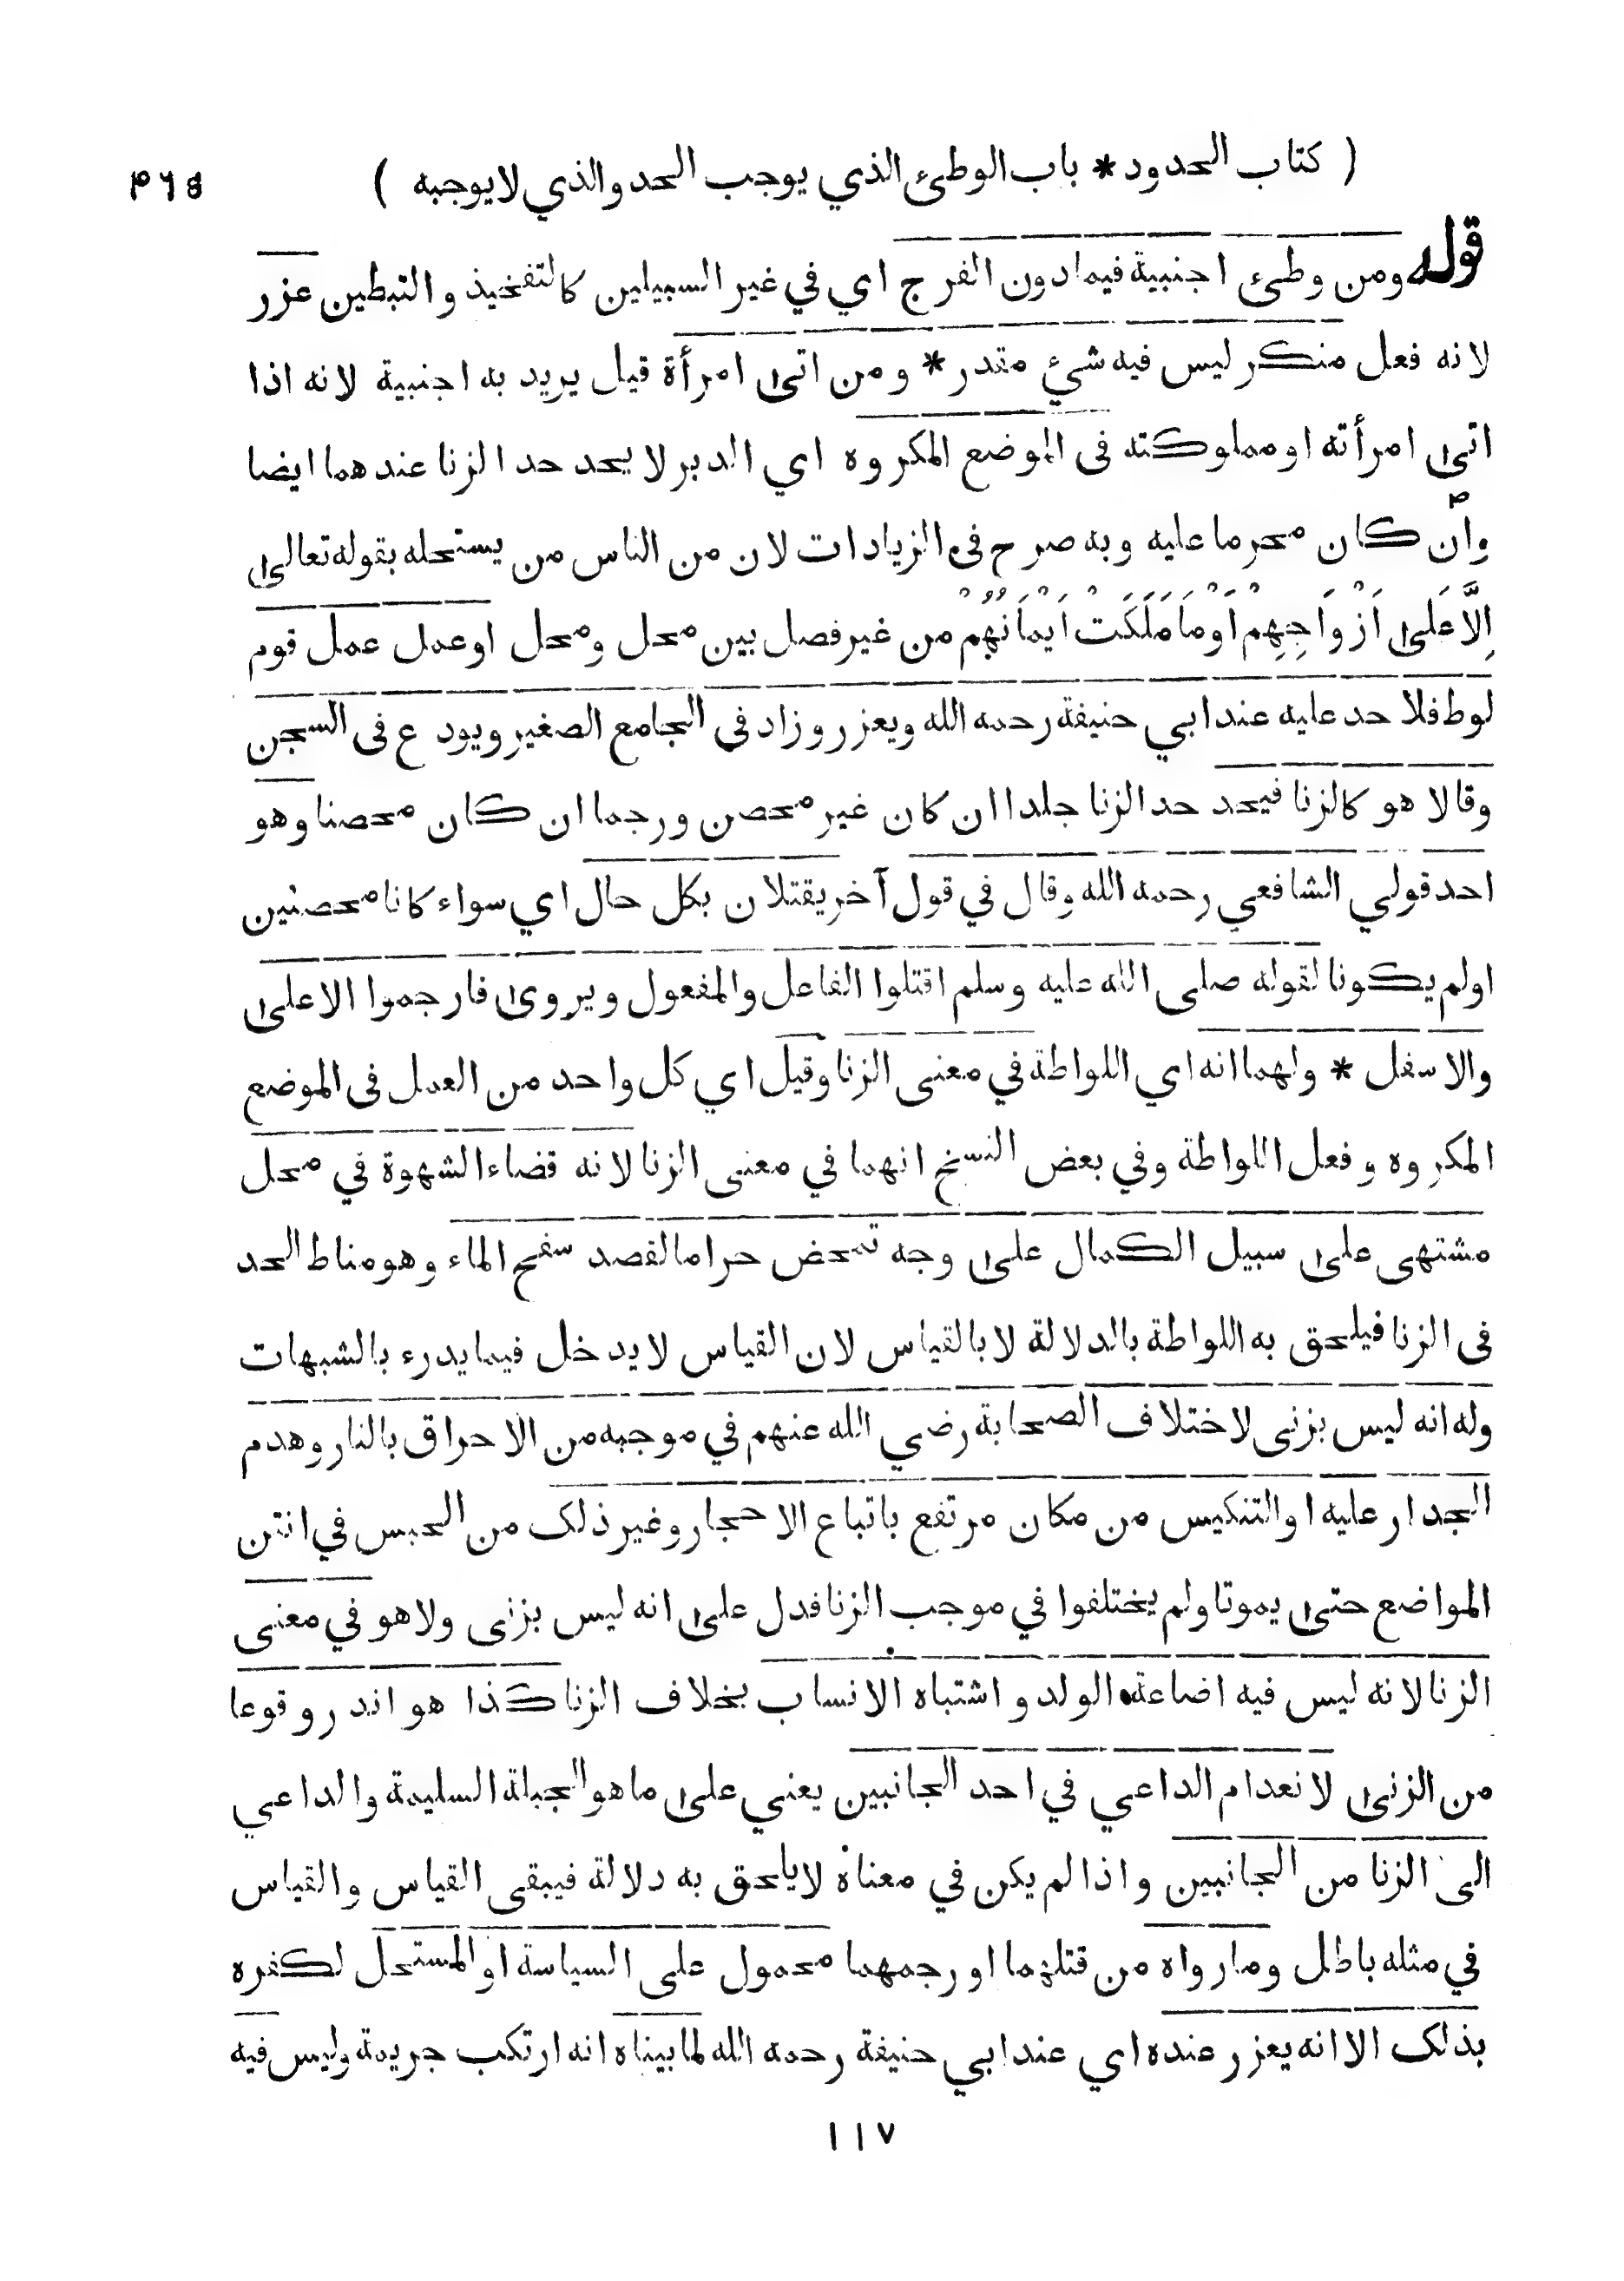 ( كتاب الحدود * باب الوطئ الذي يوجب الحد والذي لا يوجبه )
قوله ومن وطئ اجنبية فيما دون الفرج اي في غير السبيلين كالتفخيذ والتبطين عزر
لانه فعل منكر ليس فيه شئ مقدر * ومن اتى امرأة قيل يريد به اجنبية لانه اذا
اتى امرأته او مملوكته فى الموضع المكروه اي الدبر لا يحد حد الزنا عندهما ايضا
وان كان محرما عليه وبه صرح فى الزيادات لان من الناس من يستحله بقوله تعالى
اِلَّا عَلى اَزْوَاجِهِمْ اَوْمَا مَلَكَتْ اَيْمَانُهُمْ من غير فصل بين محل ومحل او عمل عمل قوم
لوط فلا حد عليه عند ابي حنيفة رحمه الله ويعزر وزاد فى الجامع الصغير ويودع فى السجن
وقالا هو كالزنا فيحد حد الزنا جلدا ان كان غير محصن ورجما ان كان محصنا وهو
احد قولي الشافعي رحمه الله وقال في قول آخر يقتلان بكل حال اي سواء كانا محصنين
اولم يكونا لقوله صلى الله عليه وسلم اقتلوا الفاعل والمفعول ويروى فارجموا الاعلى
والاسفل * ولهما انه اي اللواطة في معنى الزنا وقيل اي كل واحد من العمل فى الموضع
المكروه وفعل اللواطة وفي بعض النسخ انهما في معنى الزنا لانه قضاء الشهوة في محل
مشتهى على سبيل الكمال على وجه تمحض حراما لقصد سفح الماء وهو مناط الحد
فى الزنا فيلحق به اللواطة بالدلالة لا بالقياس لان القياس لا يدخل فيما يدرء بالشبهات
وله انه ليس بزنى لاختلاف الصحابة رضي الله عنهم في موجبه من الاحراق بالنار وهدم
الجدار عليه او التنكيس من مكان مرتفع باتباع الاحجار وغير ذلك من الحبس في انتن
المواضع حتى يموتا ولم يختلفوا في موجب الزنا فدل على انه ليس بزنى ولا هو في معنى
الزنا لانه ليس فيه اضاعة الولد واشتباه الانساب بخلاف الزنا كذا هو اندر وقوعا
من الزنى لانعدام الداعي في احد الجانبين يعني على ما هو الجبلة السليمة والداعي
الى الزنا من الجانبين واذا لم يكن في معناه لا يلحق به دلالة فيبقى القياس والقياس
في مثله باطل وما رواه من قتلهما او رجمهما محمول على السياسة او المستحل لكفره
بذلك الا انه يعزر عنده اي عند ابي حنيفة رحمه الله لما بيناه انه ارتكب جريمة وليس فيه
١١٧